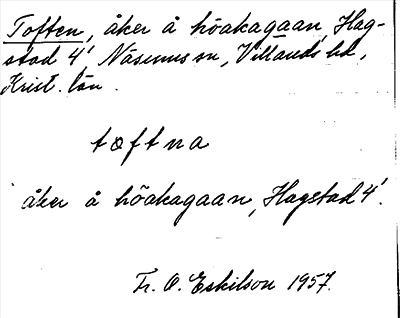 Toften, åker å höakagaan, Hag-
stad 4', Näsums sn, Villands hd,
Krist. län.
tæftna
åker å höakagaan, Hagstad 4'.
Fr. O. Eskilson 1957.